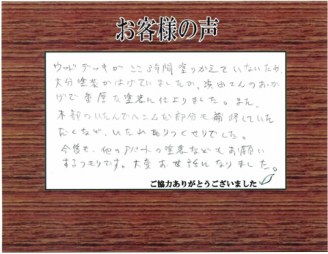 お客様の声
ウッドデッキがここ 時間塗りかえていないため、
大分塗装がはげていましたが、浜田さんのおか
げで 重厚な塗装に仕上りました。また、
木部のいたんでへこんだ部分も補修していた
だくなど、いたれりつくせりでした。
今後も、他のアパートの塗装などもお願い
するつもりです。大変お世話になりました。
ご協力ありがとうございました